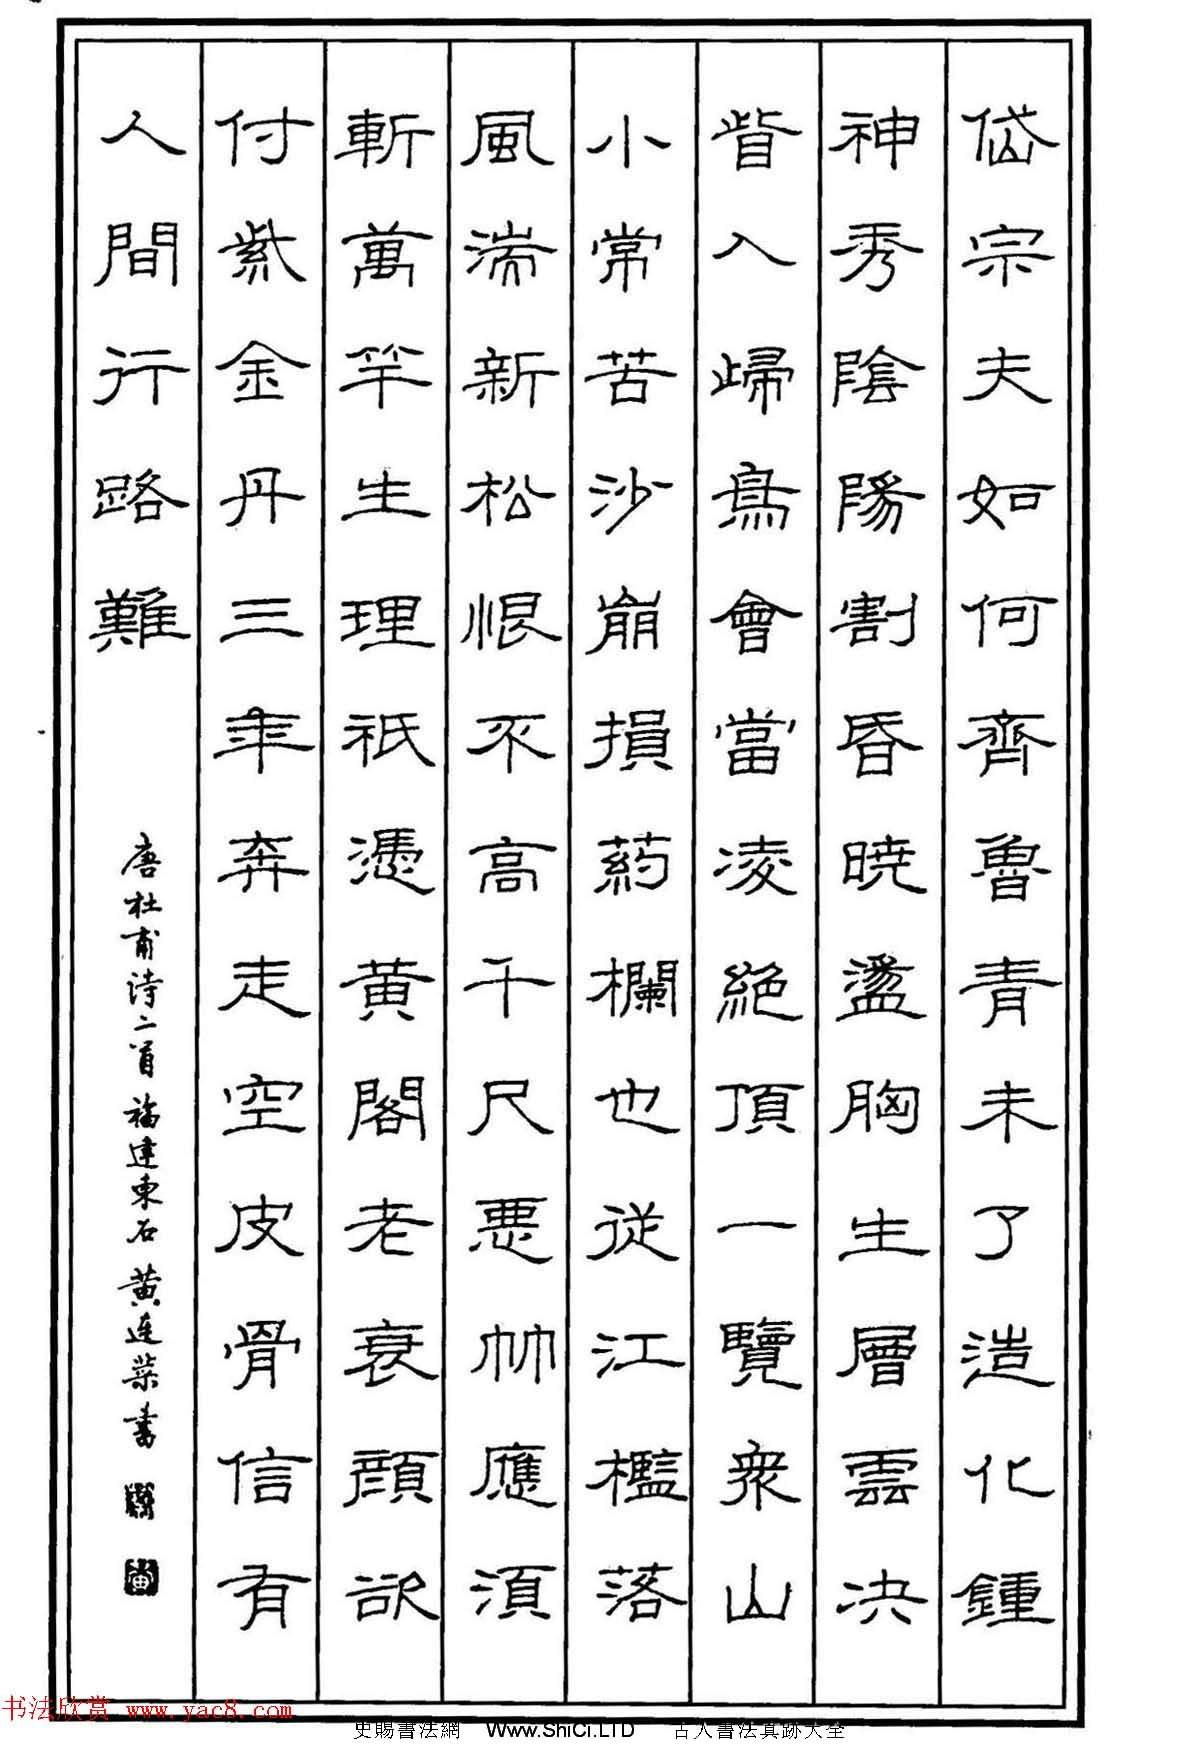 岱宗夫如何齊魯青未了造化鍾
神秀陰陽割昏曉盪胸生層雲決
眥入歸鳥會當凌絕頂一覽衆山
小常苦沙崩損葯欄也從江檻落
風湍新松恨不高千尺惡竹應須
斬萬竿生理祇憑黃閣老衰顏欲
付紫金丹三年奔走空皮骨信有
人間行路難
唐杜甫詩二首福建東石黃連葉書
书法欣赏 www.yac8.com
史賜書法網 Www.ShiCi.LTD 古人書法真跡大全